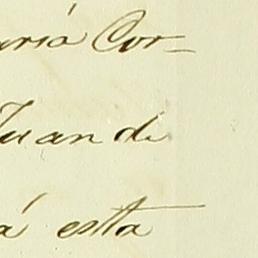 aria Cor-
Juan de
á esta